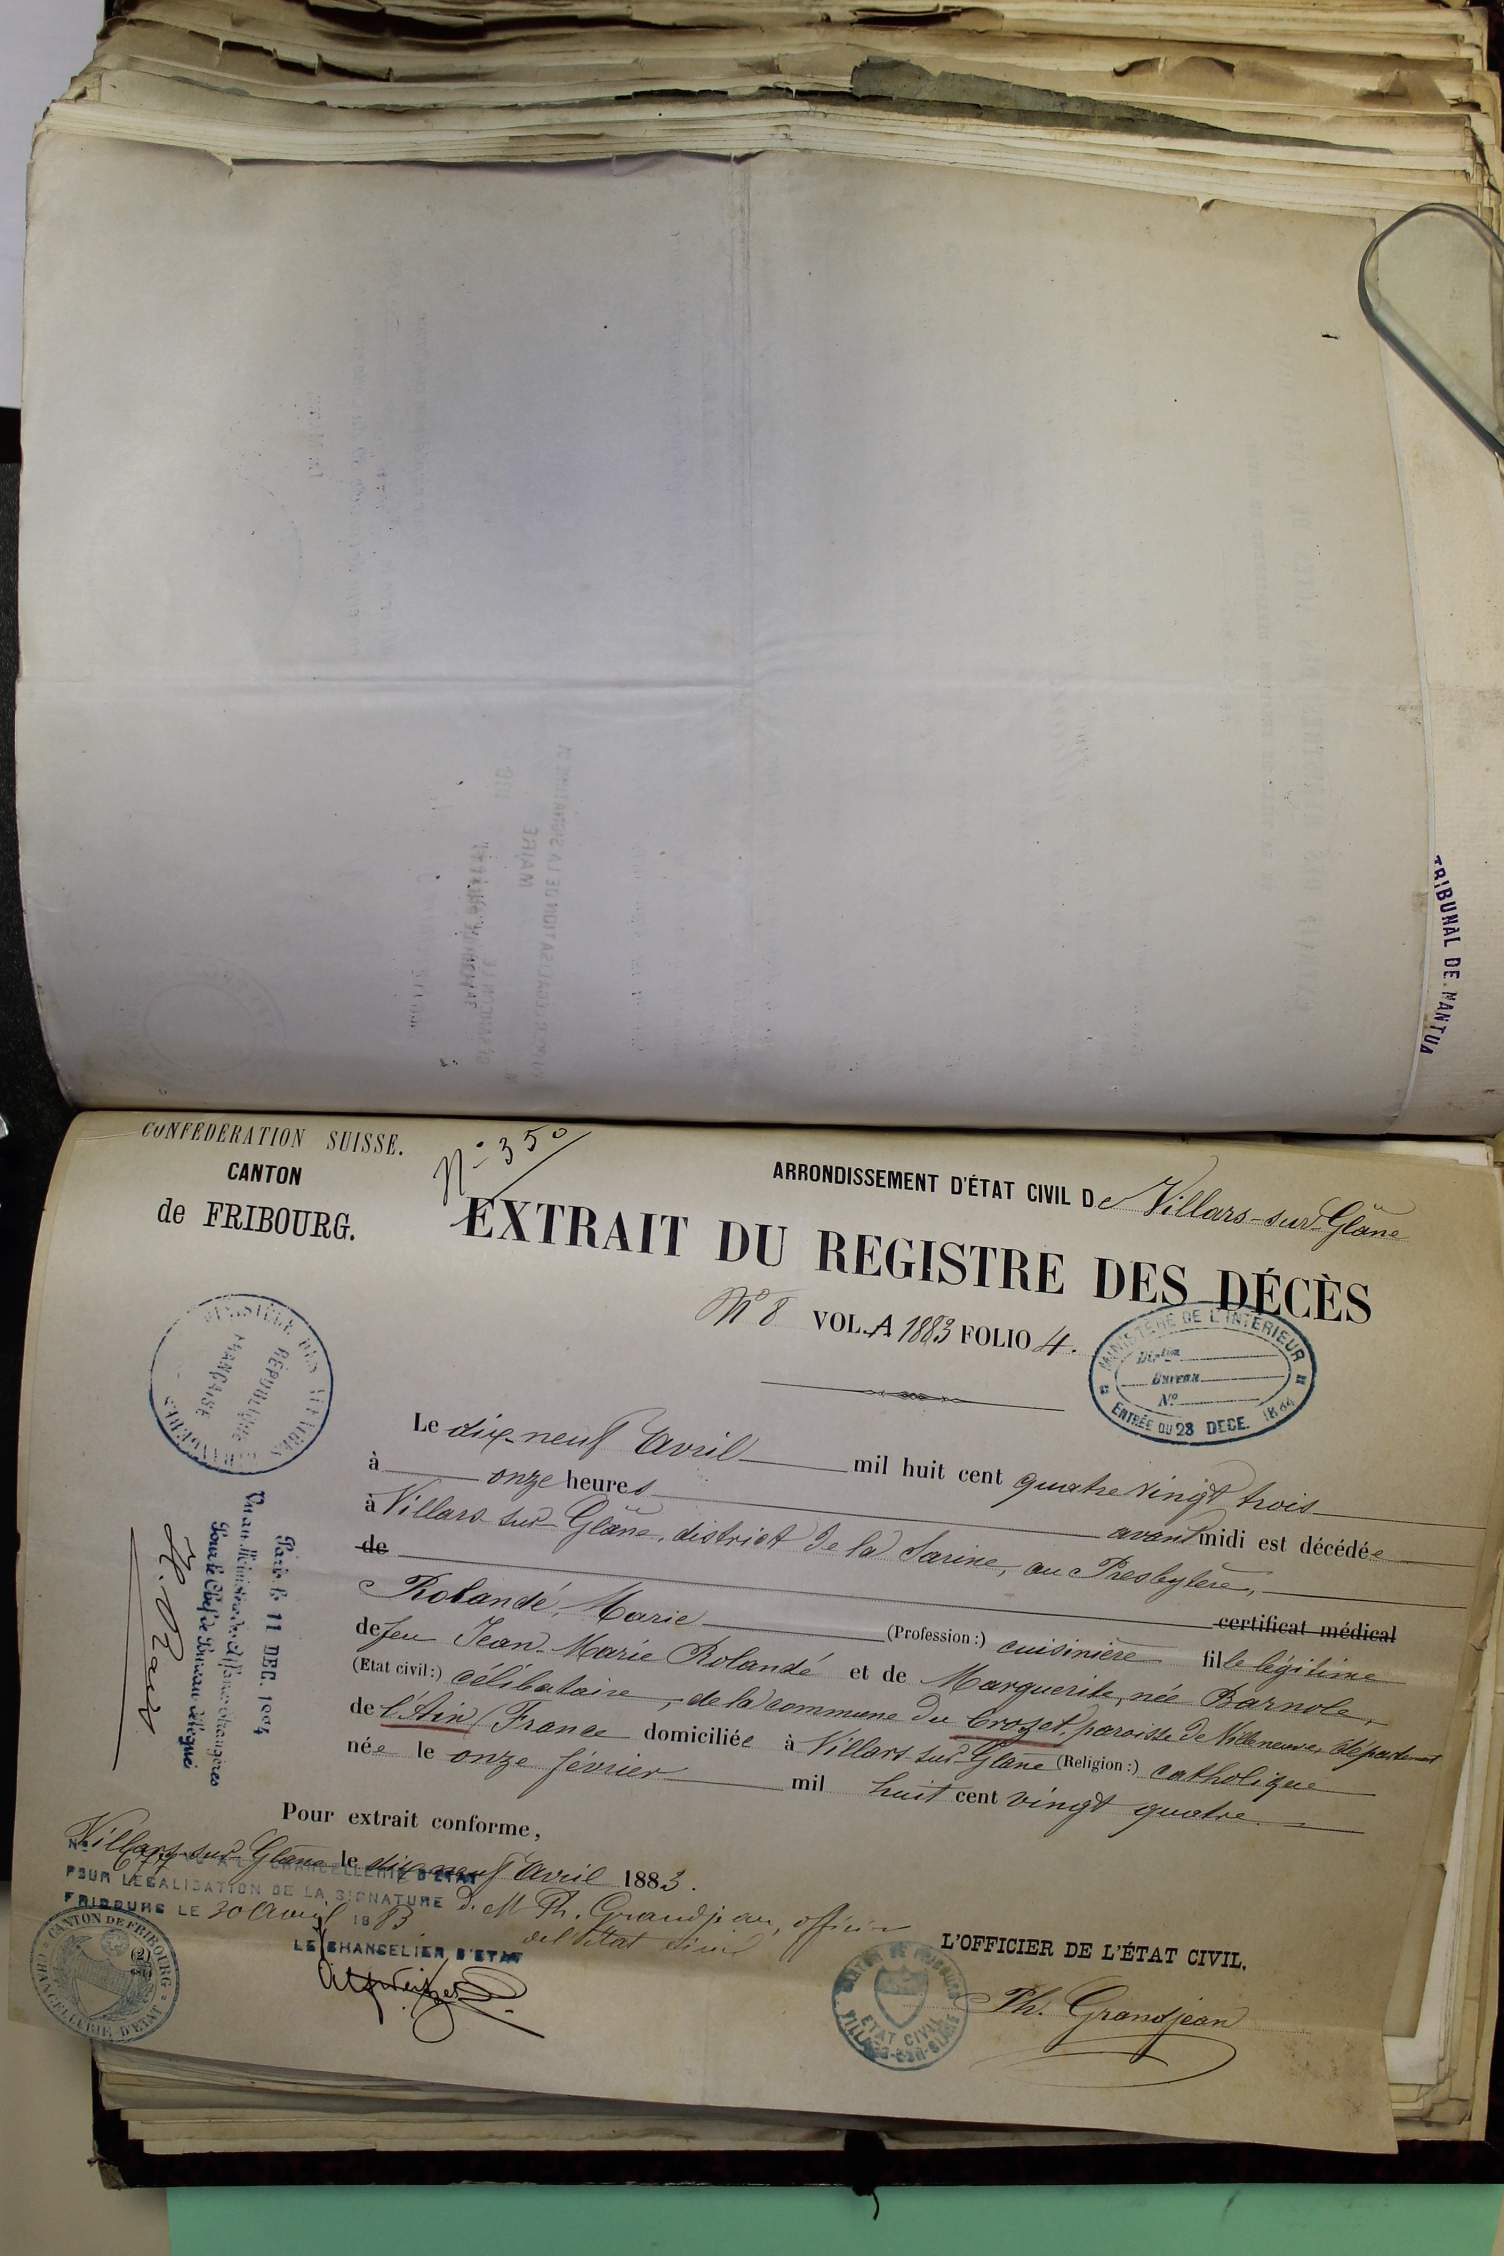 TRIBUNAL DE NANTUA
CONFÉDÉRATION SUISSE.
CANTON
de FRIBOURG.
N° 350
ARRONDISSEMENT D'ÉTAT CIVIL De Villars-sur-Glâne
EXTRAIT DU REGISTRE DES DÉCÈS
N° 8 VOL. A 1883 FOLIO 4.
MINISTÈRE DE L'INTÉRIEUR
Bureau
N°
ENTRÉE DU 28 DECE. 1884
MINISTÈRE DES AFFAIRES ÉTRANGÈRES
RÉPUBLIQUE
FRANÇAISE
Le dix-neuf Avril mil huit cent quatre vingt trois
à onze heures avant midi est décédée
à Villars sur Glâne, district de la Sarine, au Presbytère,
de certificat médical
Rolandé, Marie (Profession:) cuisinière fille légitime
de feu Jean-Marie Rolandé et de Marguerite, née Barnole,
(Etat civil:) célibataire, de la commune du Crozet, paroisse de Villeneuve, département
de l'Ain (France domiciliée à Villars sur Glâne (Religion:) catholique
née le onze février mil huit cent vingt quatre.
Paris le 11 DEC. 1884
Vu au Ministère des Affaires étrangères
Pour le Chef de Bureau délégué
Pour extrait conforme,
Villars-sur-Glâne le dix neuf Avril 1883.
N° CHANCELLERIE D'ÉTAT
POUR LÉGALISATION DE LA SIGNATURE d. M Ph. Grandjean, officier
FRIBOURG LE 20 Avril 1883 de l'Etat civil
LE CHANCELIER D'ÉTAT
CANTON DE FRIBOURG
CHANCELLERIE D'ÉTAT
L'OFFICIER DE L'ÉTAT CIVIL.
Ph. Grandjean
CANTON DE FRIBOURG
ÉTAT CIVIL
VILLARS-SUR-GLANE